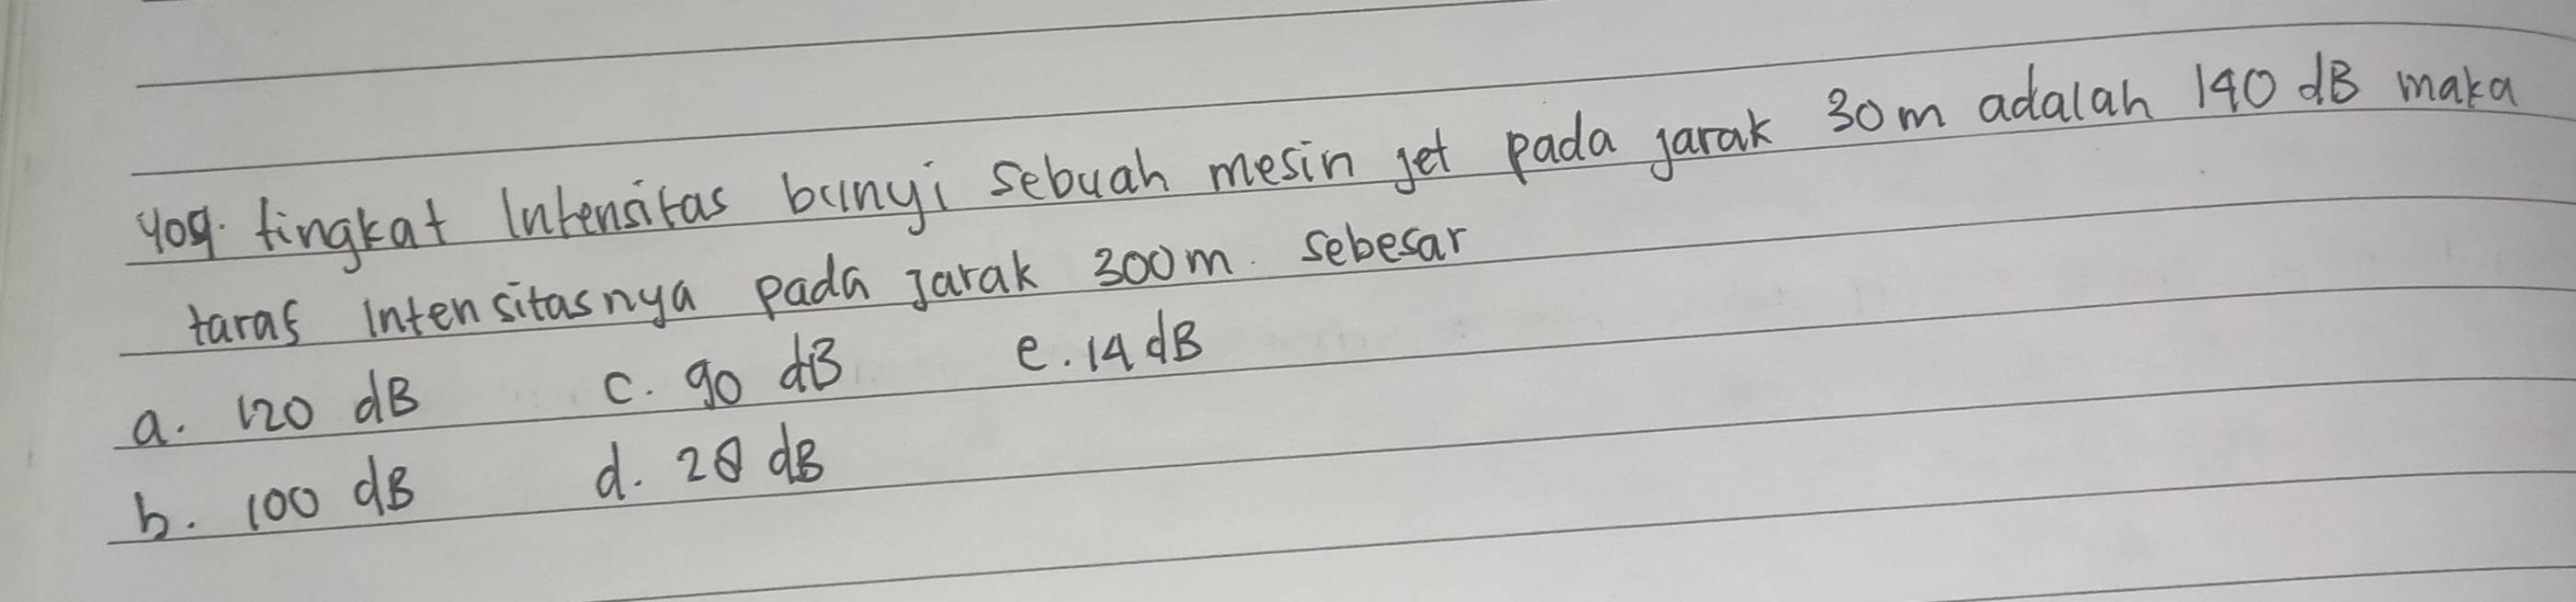 409. tingkat Intensitas bunyi sebuah mesin jet pada jarak 30 m adalah 140 dB maka
taraf intensitasnya pada jarak 300 m. sebesar
a. 120 dB c. 90 dB e. 14 dB
b. 100 dB d. 28 dB